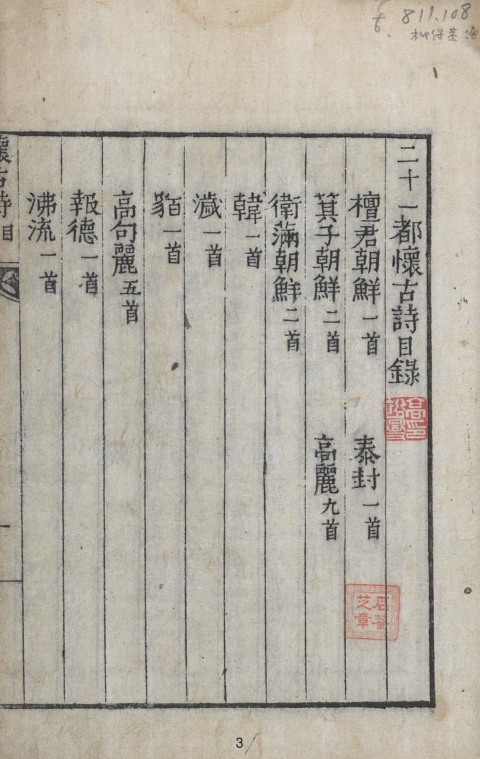 811.108
二十一都懷古詩目錄
檀君朝鮮一首 泰封一首
箕子朝鮮二首 高麗九首
衛滿朝鮮二首
韓一首
濊一首
貊一首
高句麗五首
報德一首
沸流一首
懷古詩目
3